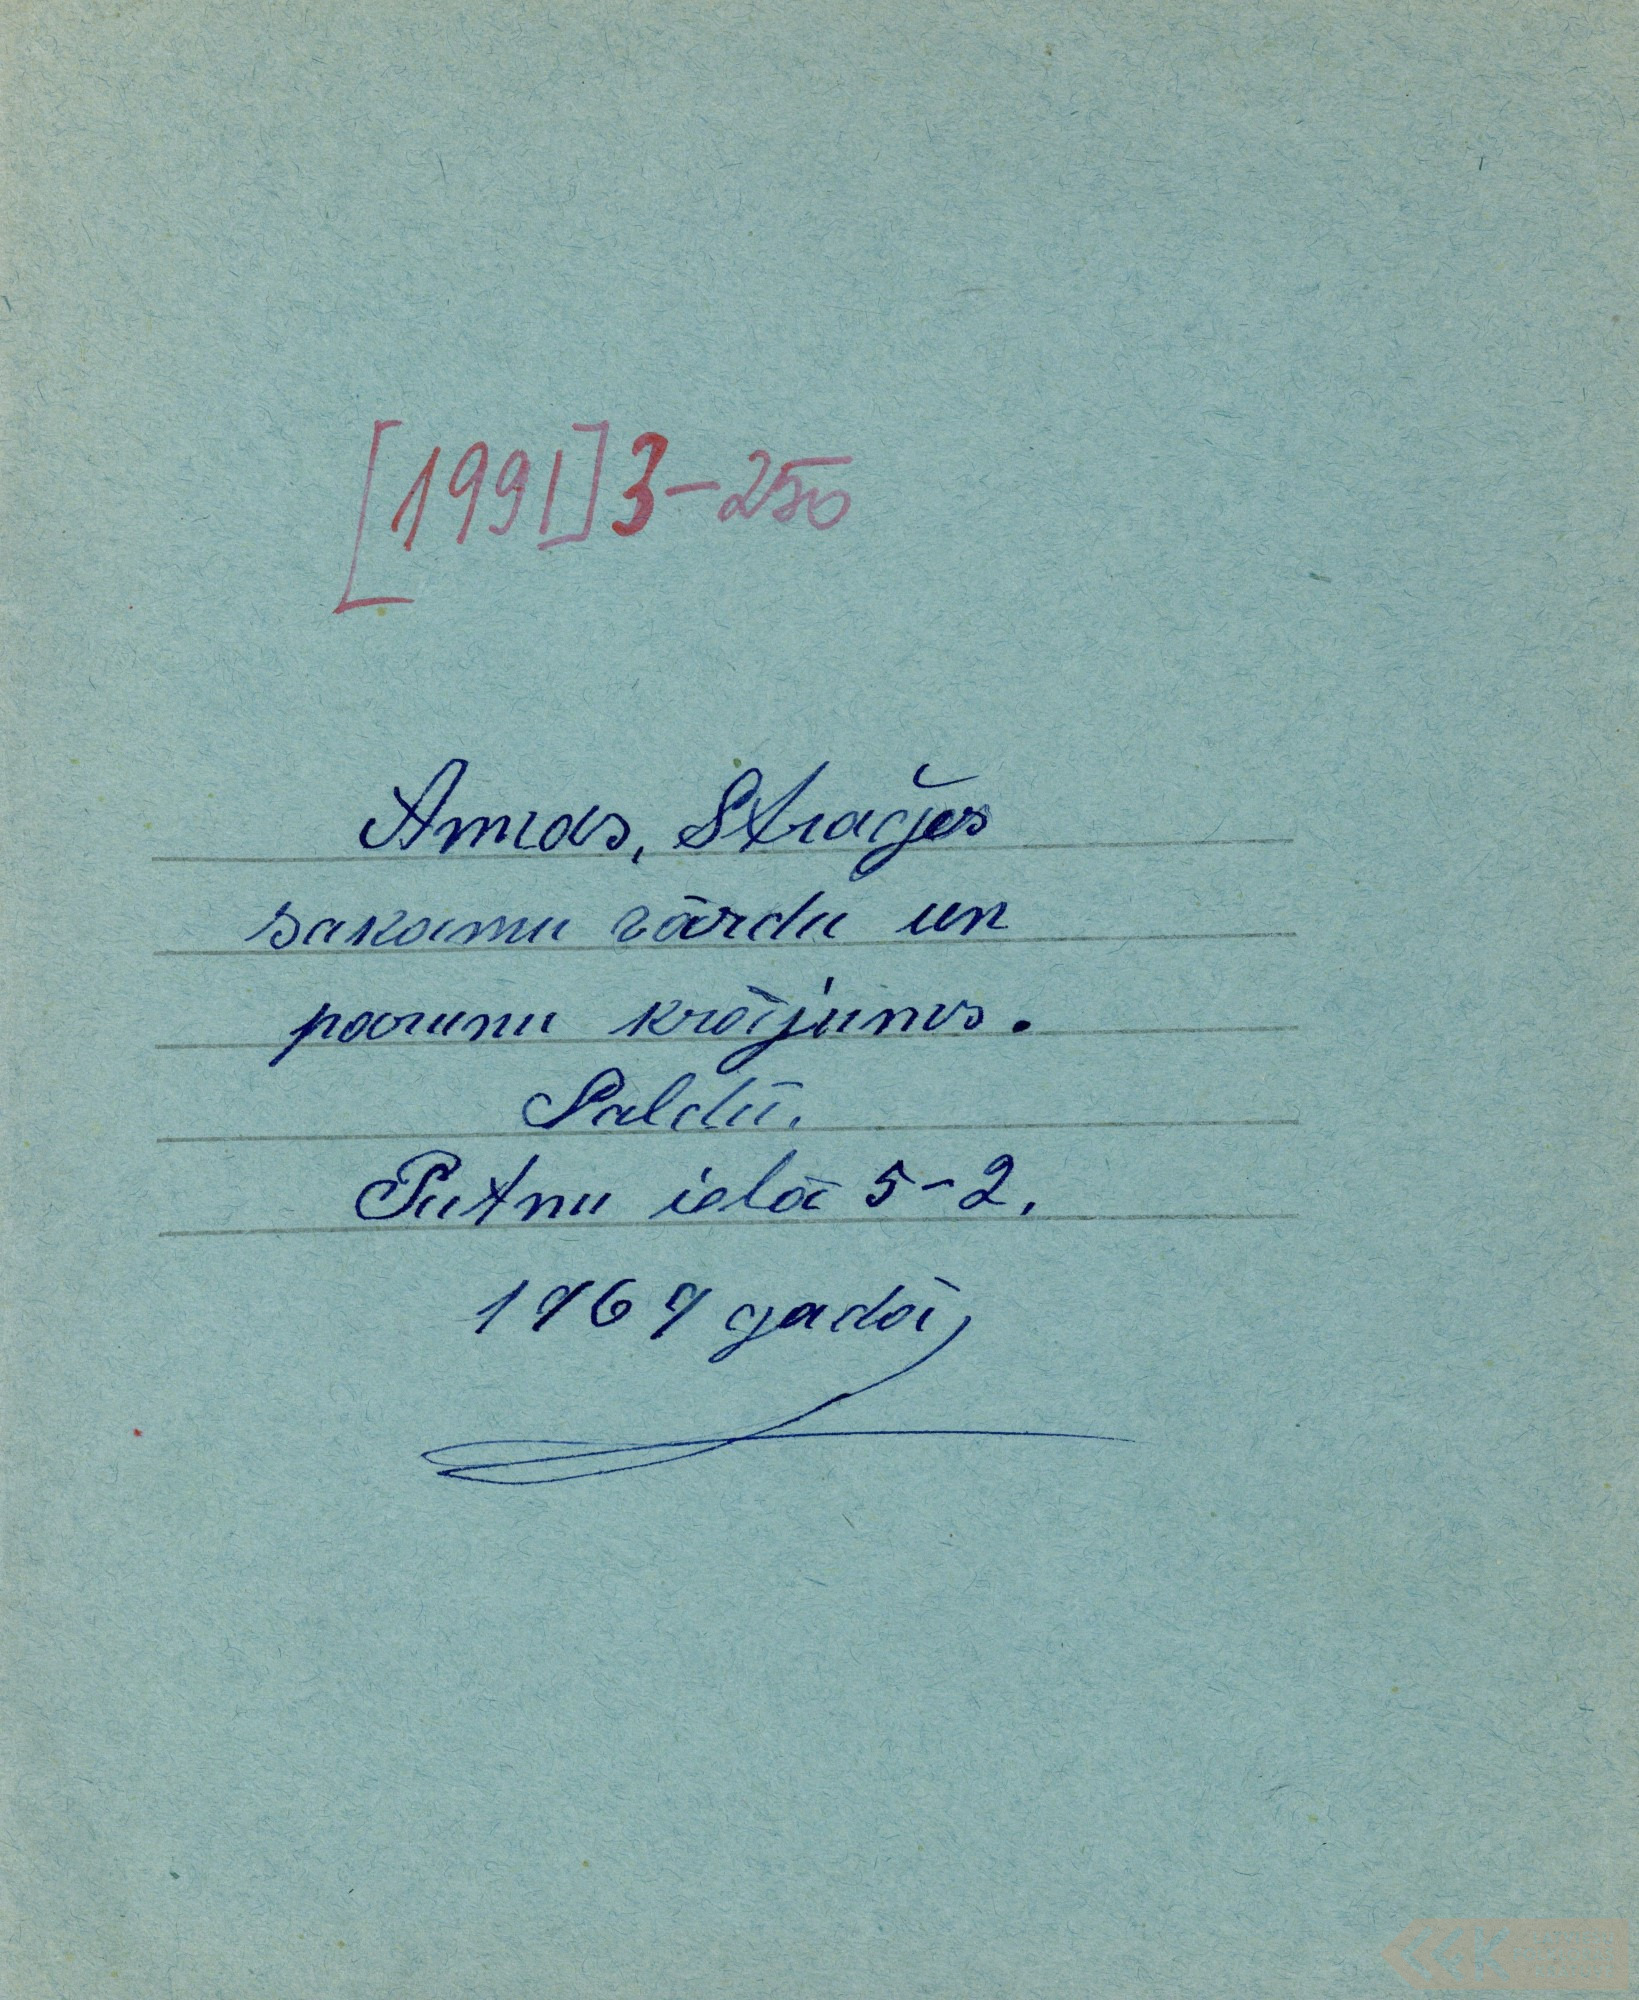 [1991] 3-250
Annas, Stražes
sakamu vārdu un
parunu krājums.
Saldū.
Putnu ielā 5-2.
1969 gadā,